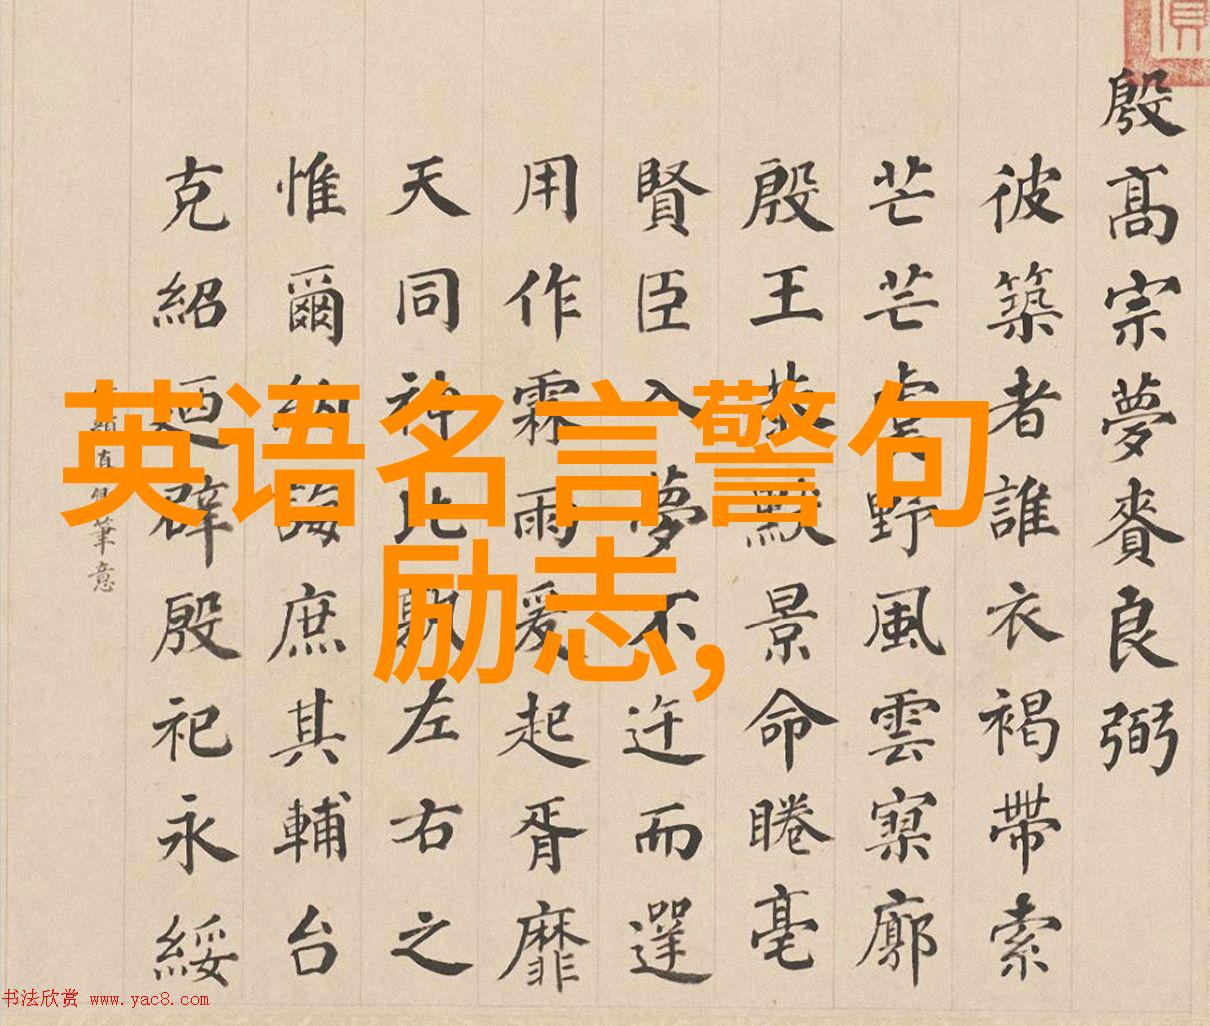 殷髙宗夢賚良弼
彼築者誰衣褐帶索
芒芒虛野風雲寥廓
殷王恭默景命睠亳
賢臣入夢不迕而遻
用作霖雨爰起胥靡
天同神比左右之
惟爾納誨庶其輔台
克紹迺辟殷祀永綏
筆意
英语名言警句
励志,
书法欣赏 www.yac8.com